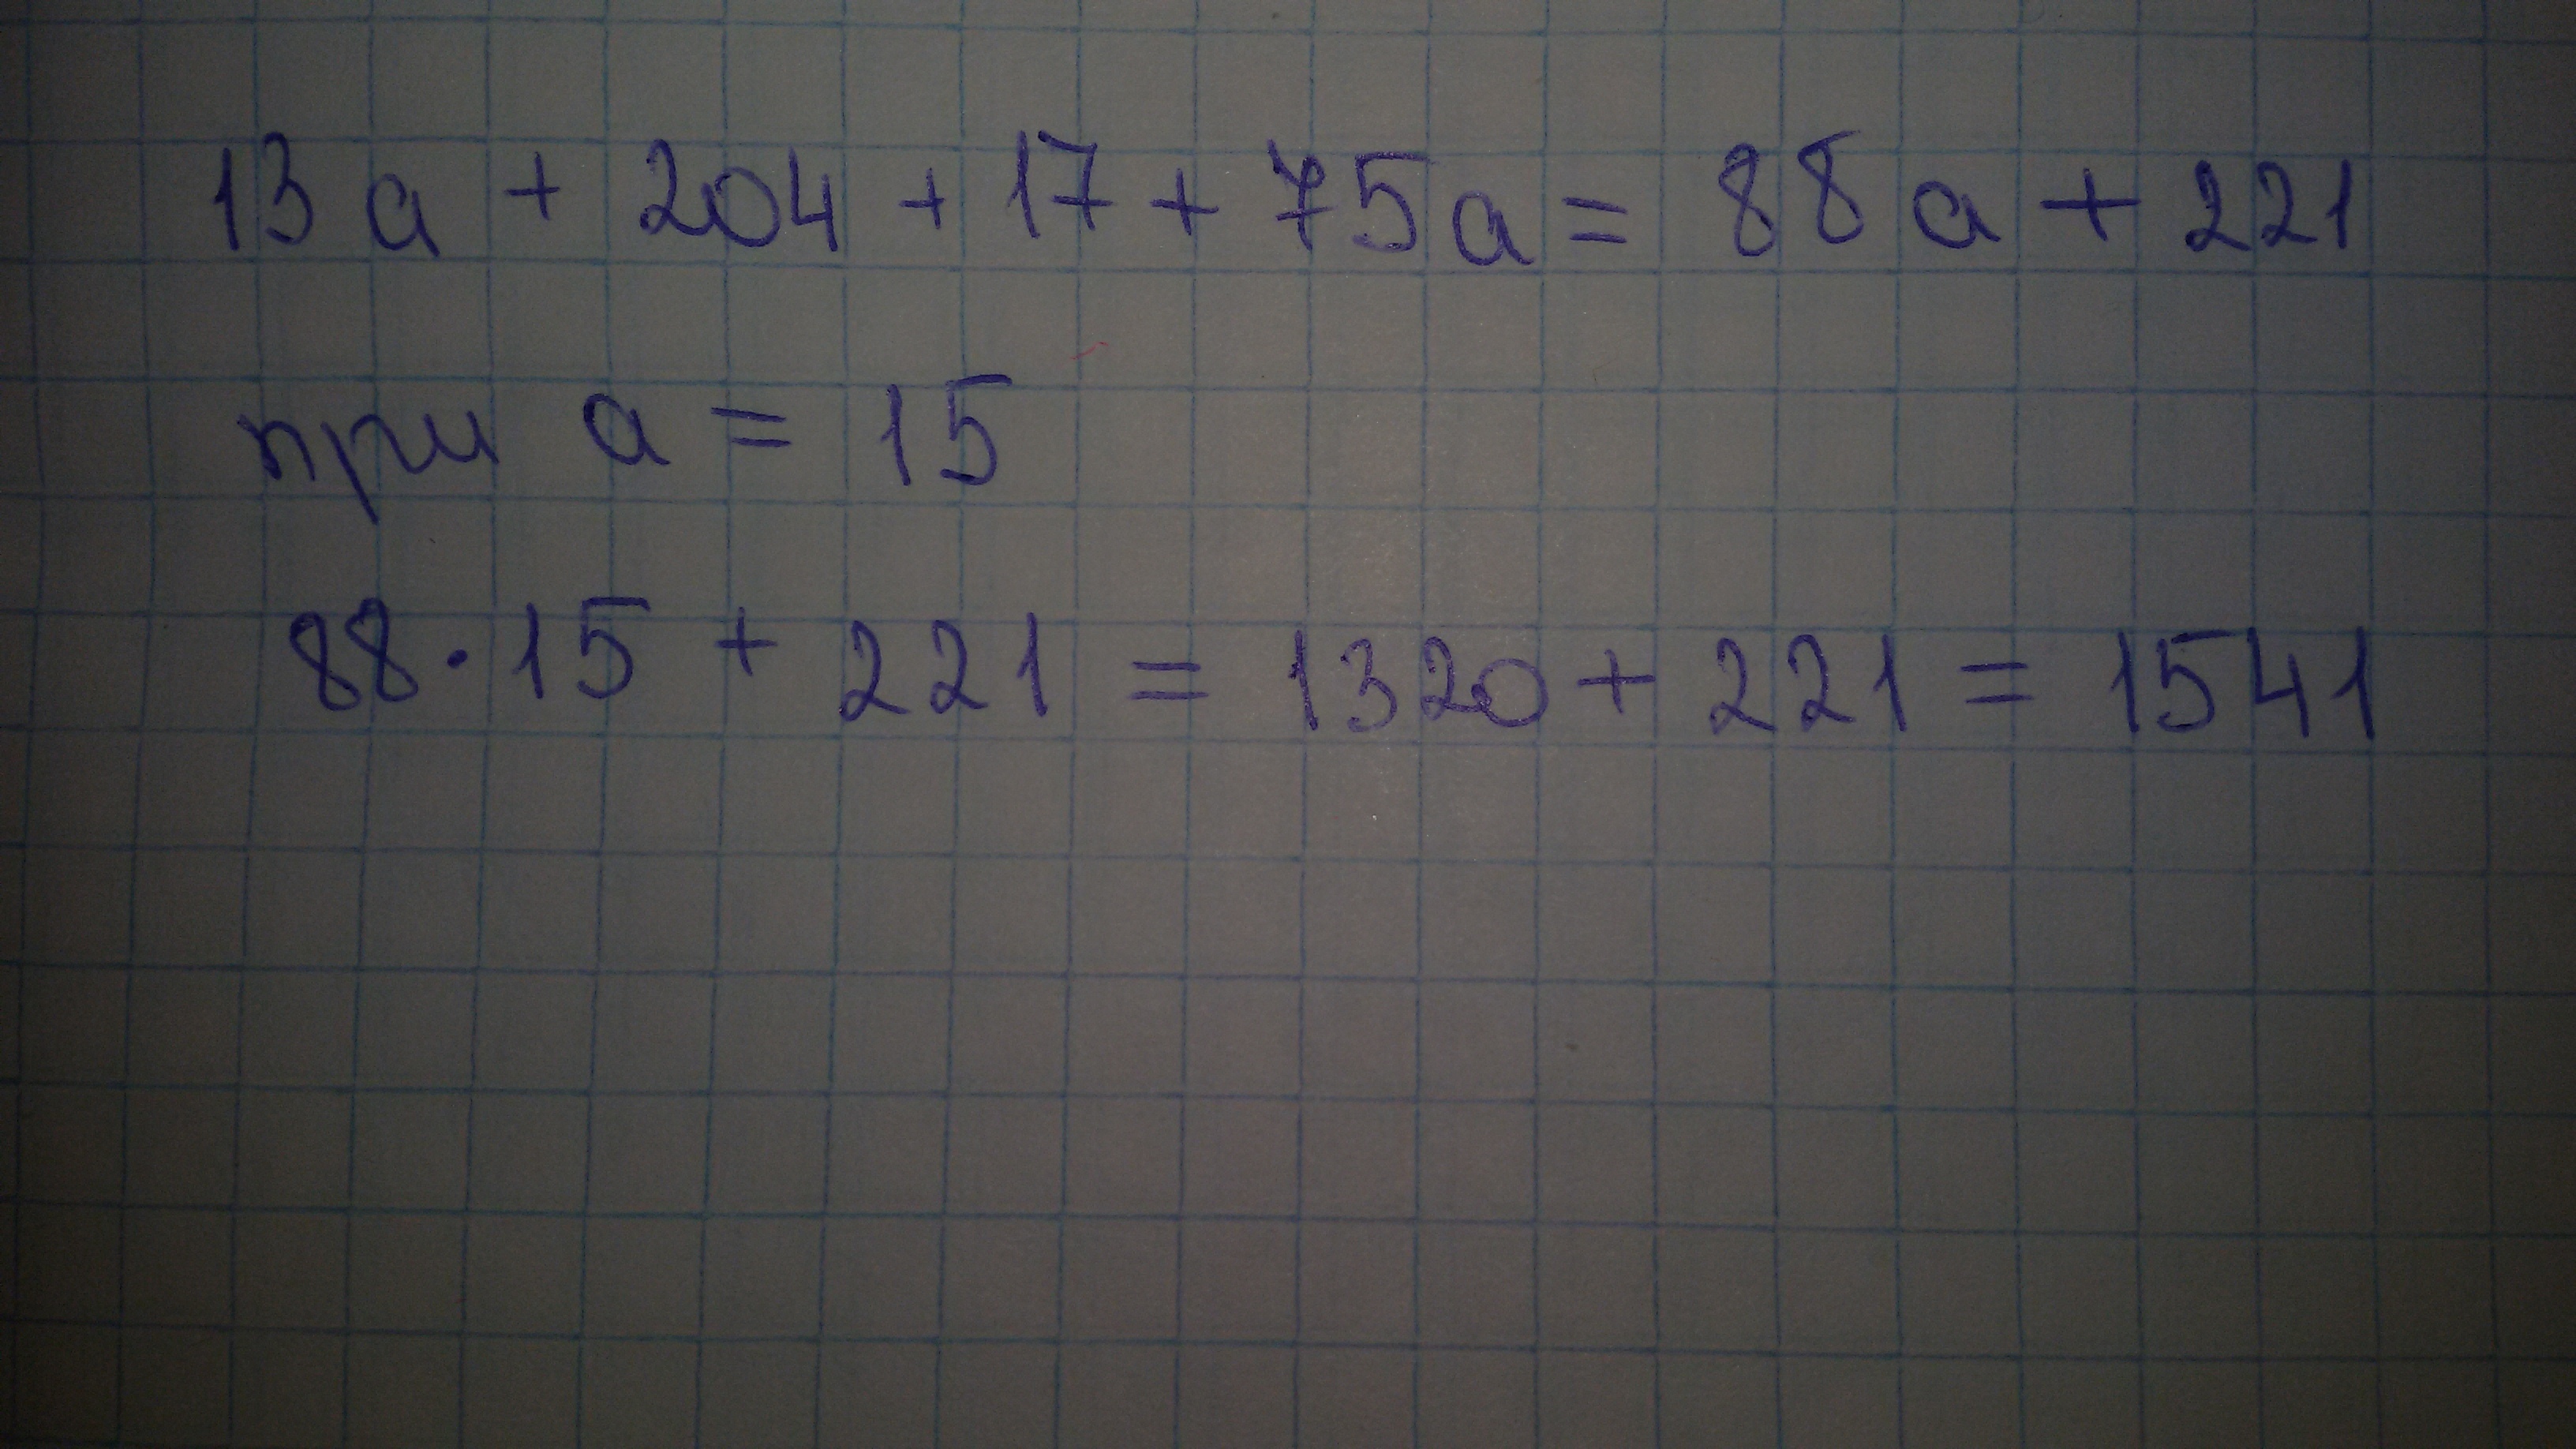 13a + 204 + 17 + 75a = 88a + 221
при a = 15
88·15 + 221 = 1320 + 221 = 1541